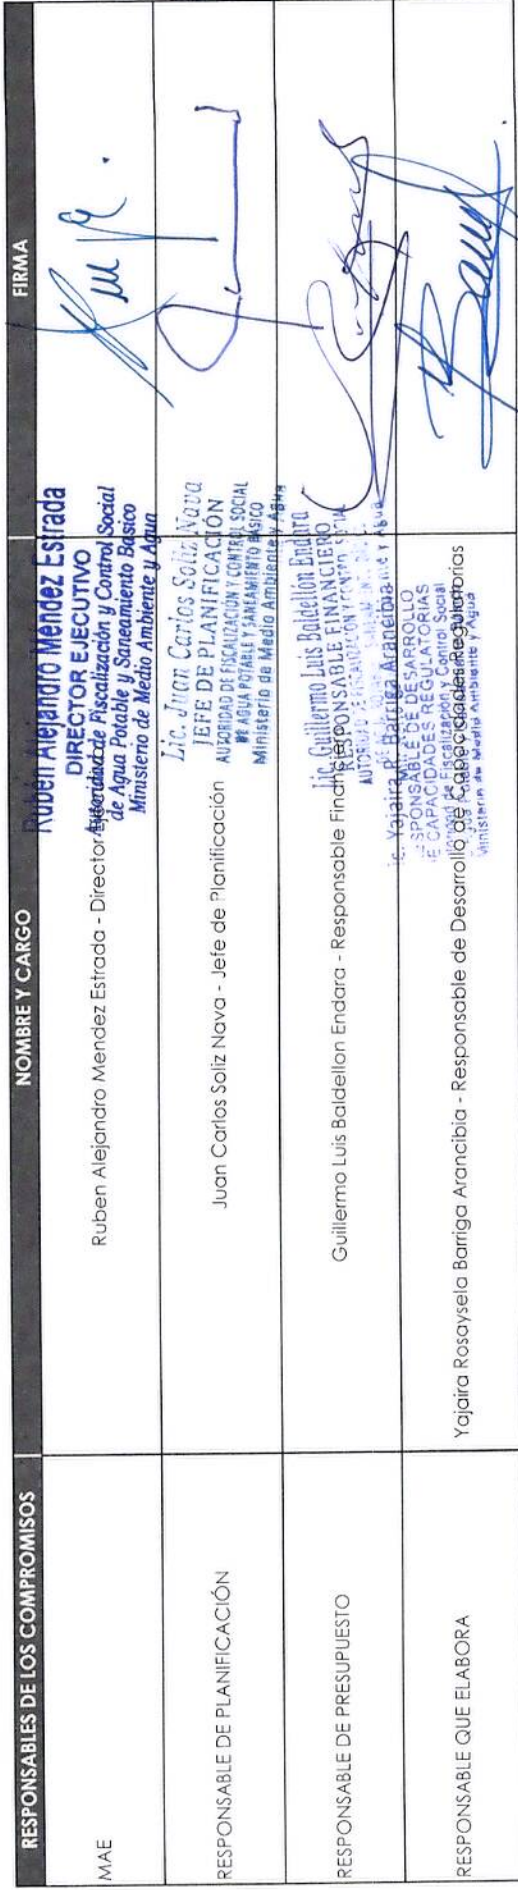 RESPONSABLES DE LOS COMPROMISOS
NOMBRE Y CARGO
FIRMA
MAE
Ruben Alejandro Mendez Estrada - Director Ejecutivo
Rubén Alejandro Méndez Estrada
DIRECTOR EJECUTIVO
Autoridad de Fiscalización y Control Social
de Agua Potable y Saneamiento Básico
Ministerio de Medio Ambiente y Agua
RESPONSABLE DE PLANIFICACIÓN
Juan Carlos Soliz Nava - Jefe de Planificación
Lic. Juan Carlos Soliz Nava
JEFE DE PLANIFICACIÓN
AUTORIDAD DE FISCALIZACIÓN Y CONTROL SOCIAL
DE AGUA POTABLE Y SANEAMIENTO BÁSICO
Ministerio de Medio Ambiente y Agua
RESPONSABLE DE PRESUPUESTO
Guillermo Luis Baldellon Endara - Responsable Financiero
Lic. Guillermo Luis Baldellón Endara
RESPONSABLE FINANCIERO
AUTORIDAD DE FISCALIZACIÓN Y CONTROL SOCIAL
RESPONSABLE QUE ELABORA
Yajaira Rosaysela Barriga Arancibia - Responsable de Desarrollo de Capacidades Regulatorias
Yajaira R. Barriga Arancibia
SPONSABLE DE DESARROLLO
E CAPACIDADES REGULATORIAS
de Fiscalización y Control Social
Ministerio de Medio Ambiente y Agua